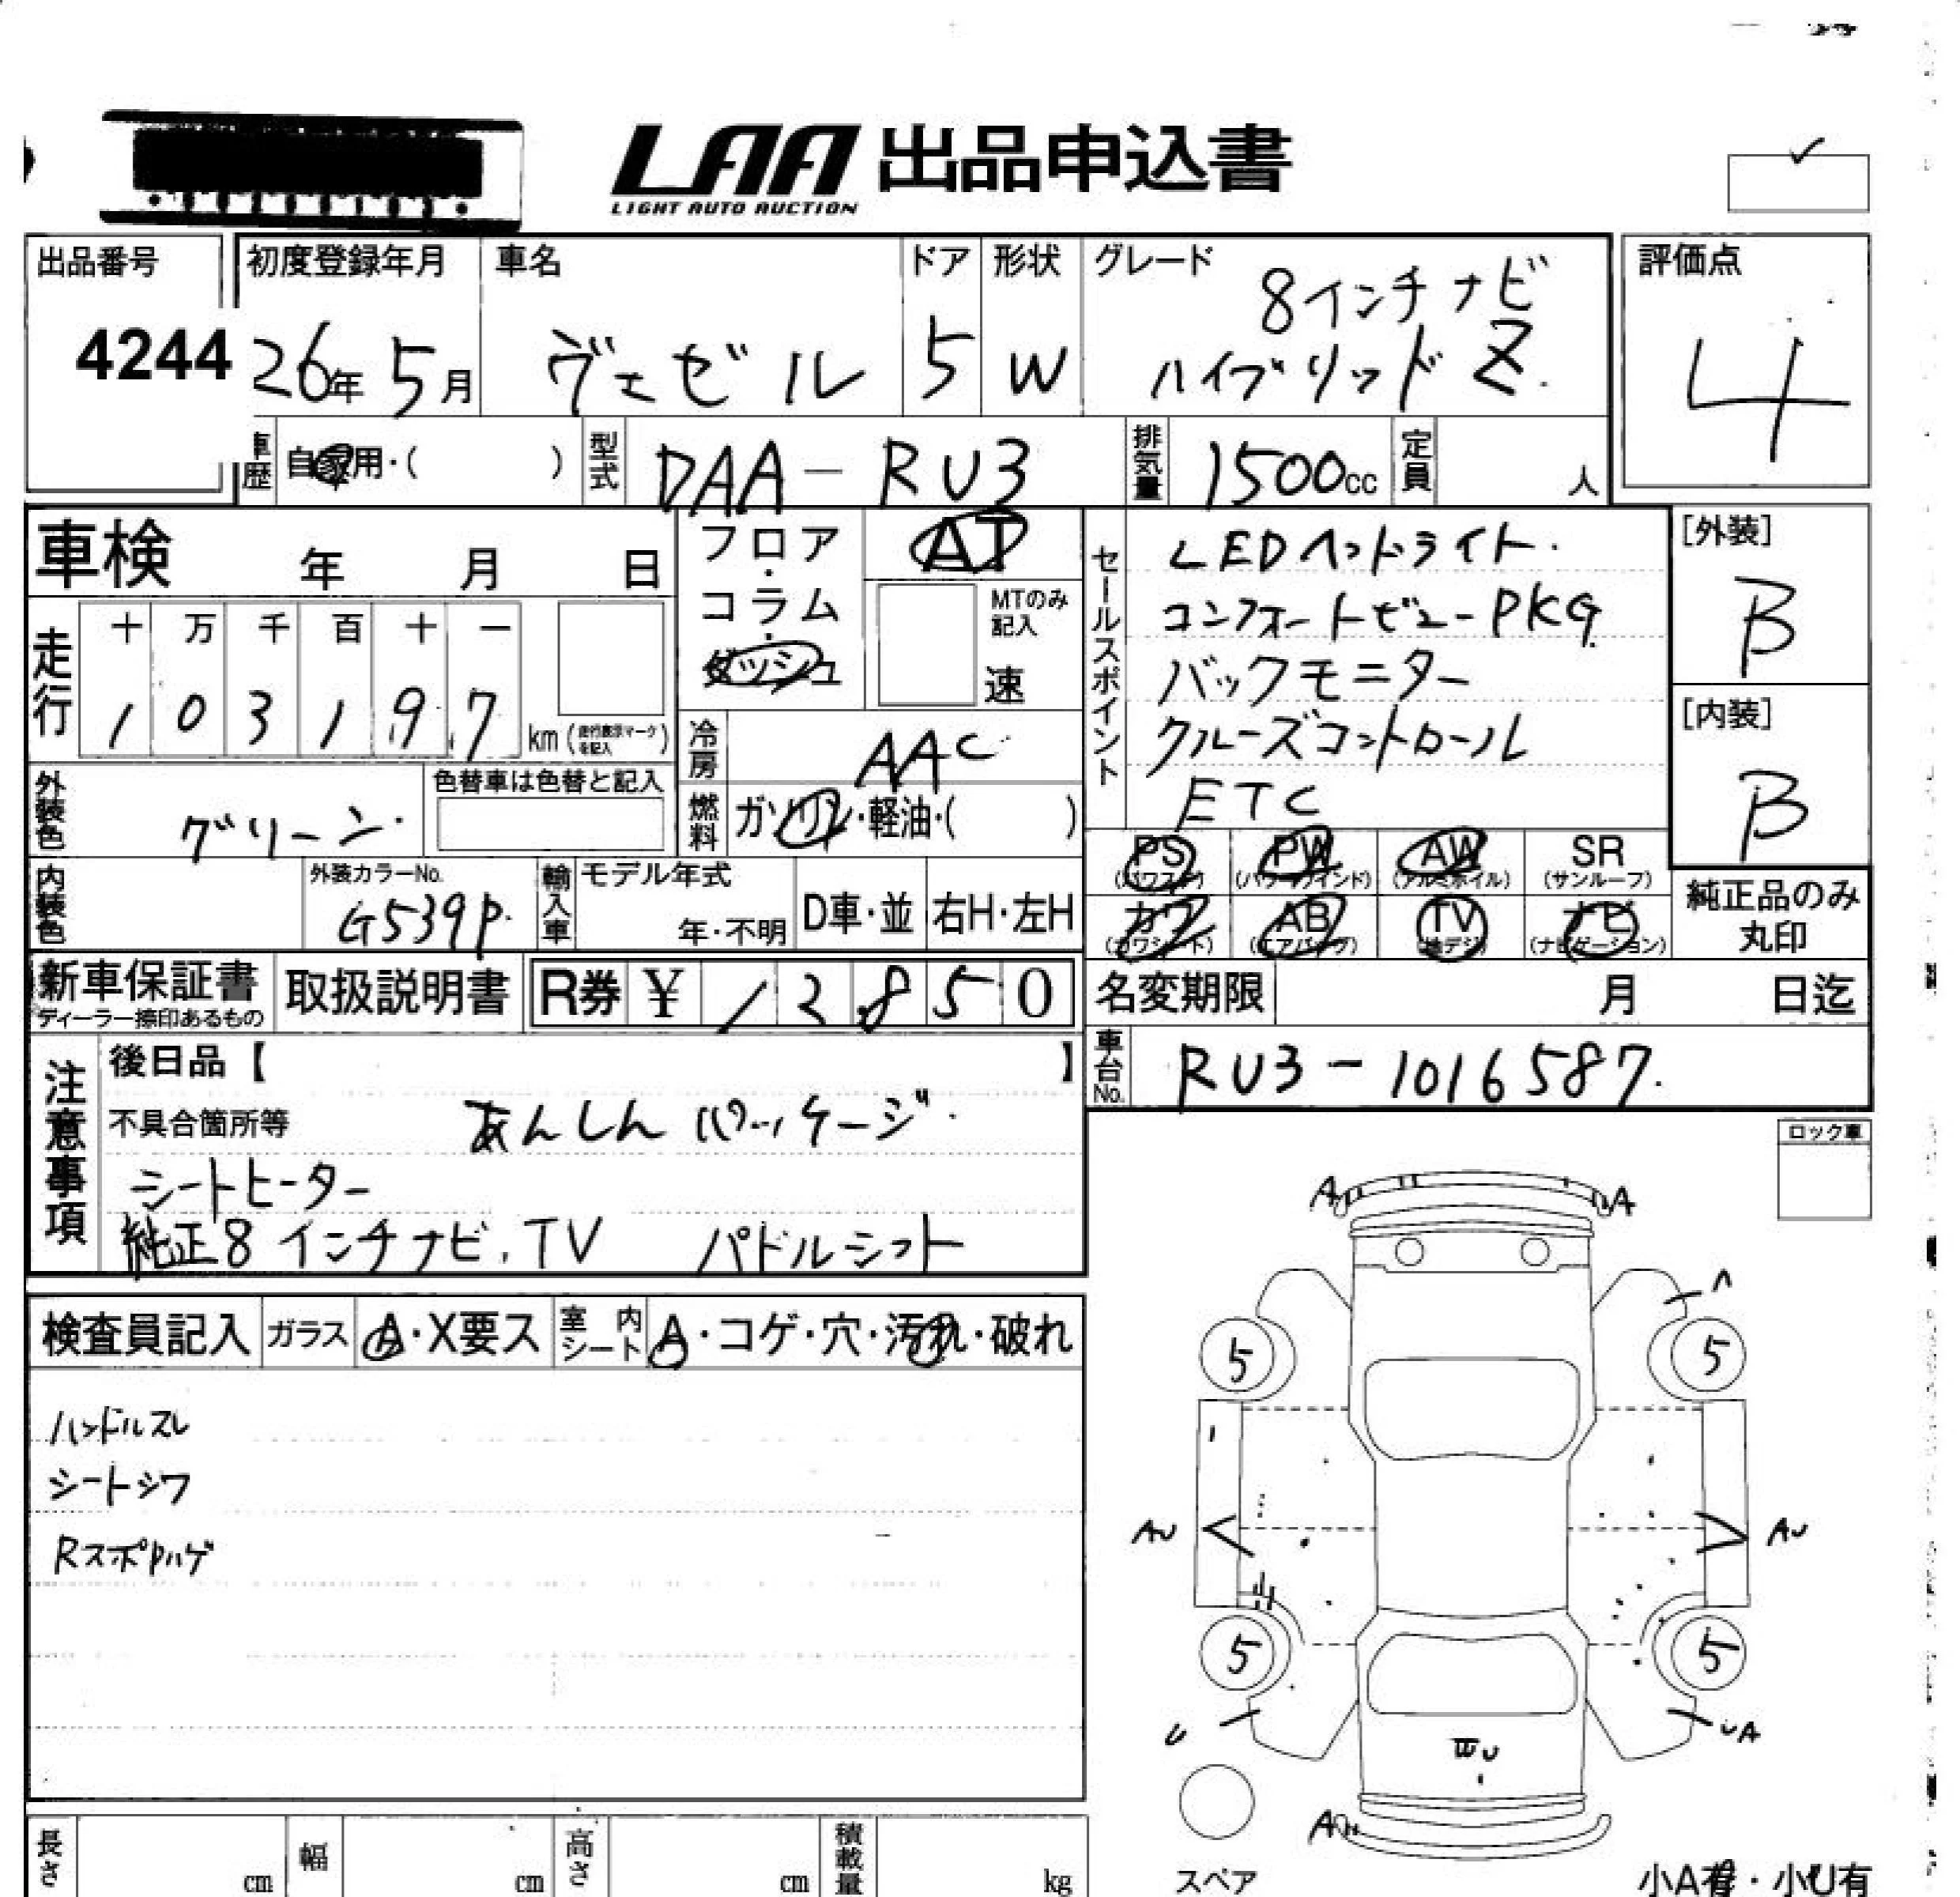 LAA 出品申込書
LIGHT AUTO AUCTION
出品番号
4244
初度登録年月
26年 5月
車名
ヴェゼル
ドア
5
形状
W
グレード
8インチナビ
ハイブリッド Z
評価点
4
車歴 自家用・( )
型式 DAA-RU3
排気量 1500cc
定員 人
車検 年 月 日
フロア・コラム・ダッシュ
AT
MTのみ記入
速
走行
十 万 千 百 十 一
1 0 3 1 9 7
km (走行表示マークを記入)
冷房 AAC
燃料 ガソリン・軽油・( )
外装色 グリーン
色替車は色替と記入
内装色
外装カラーNo.
G539P
輸入車 モデル年式
年・不明
D車・並
右H・左H
セールスポイント
LEDヘッドライト
コンフォートビューPKG
バックモニター
クルーズコントロール
ETC
PS (パワステ)
PW (パワーウインド)
AW (アルミホイル)
SR (サンルーフ)
カワ (カワシート)
AB (エアバッグ)
TV (地デジ)
ナビ (ナビゲーション)
[外装]
B
[内装]
B
純正品のみ
丸印
新車保証書
ディーラー捺印あるもの
取扱説明書
R券 ¥ 12850
名変期限 月 日迄
車台No. RU3-1016587
注意事項
後日品【 】
不具合箇所等 あんしんパッケージ
シートヒーター
純正8インチナビ、TV パドルシフト
検査員記入
ガラス A・X要ス
室内シート A・コゲ・穴・汚れ・破れ
ハンドルスレ
シートシワ
RスポPハゲ
ロック車
A A
A
5 5
AU AU
5 5
U UA
U
A
スペア
小A有・小U有
長さ cm
幅 cm
高さ cm
積載量 kg